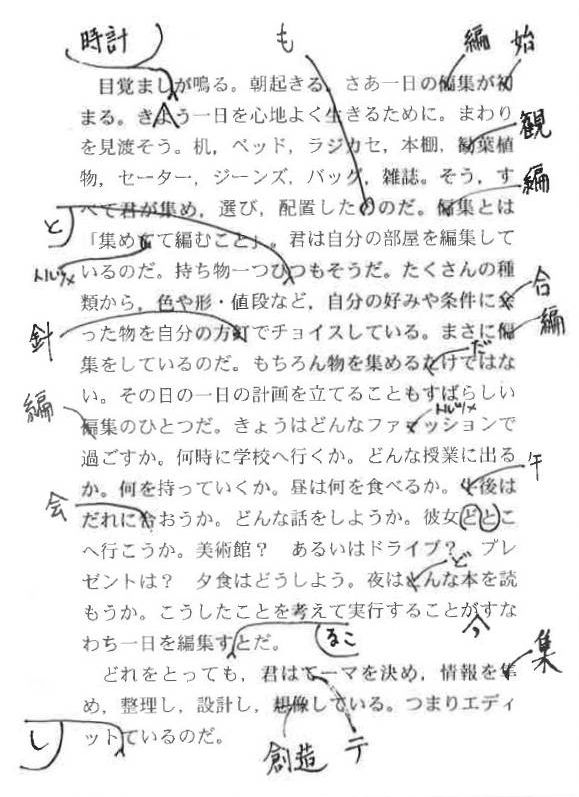 時計 も 編 始
目覚ましが鳴る。朝起きる。さあ一日の偏集が初
まる。きょう一日を心地よく生きるために。まわり
を見渡そう。机，ベッド，ラジカセ，本棚，勧葉植 観
物，セーター，ジーンズ，バッグ，雑誌。そう，す 編
べて君が集め，選び，配置したののだ。偏集とは
と 「集めてて編むこと」。君は自分の部屋を編集して
トルツメ いるのだ。持ち物一つひつもそうだ。たくさんの種
類から，色や形・値段など，自分の好みや条件に会 合
針 った物を自分の方釘でチョイスしている。まさに偏 編
集をしているのだ。もちろん物を集めるたけではな だ
い。その日の一日の計画を立てることもすばらしい
編 偏集のひとつだ。きょうはどんなファッッションで トルツメ
過ごすか。何時に学校へ行くか。どんな授業に出る
か。何を持っていくか。昼は何を食べるか。牛後は 午
会 だれに合おうか。どんな話をしようか。彼女どとこ
へ行こうか。美術館？　あるいはドライブ？　プレ
ゼントは？　夕食はどうしよう。夜はとんな本を読 ど
もうか。こうしたことを考えて実行することがすな つ
わち一日を編集すとだ。 るこ
どれをとっても，君はてーマを決め，情報を隼 集
め，整理し，設計し，想像している。つまりエディ
し ットているのだ。
創造 テ